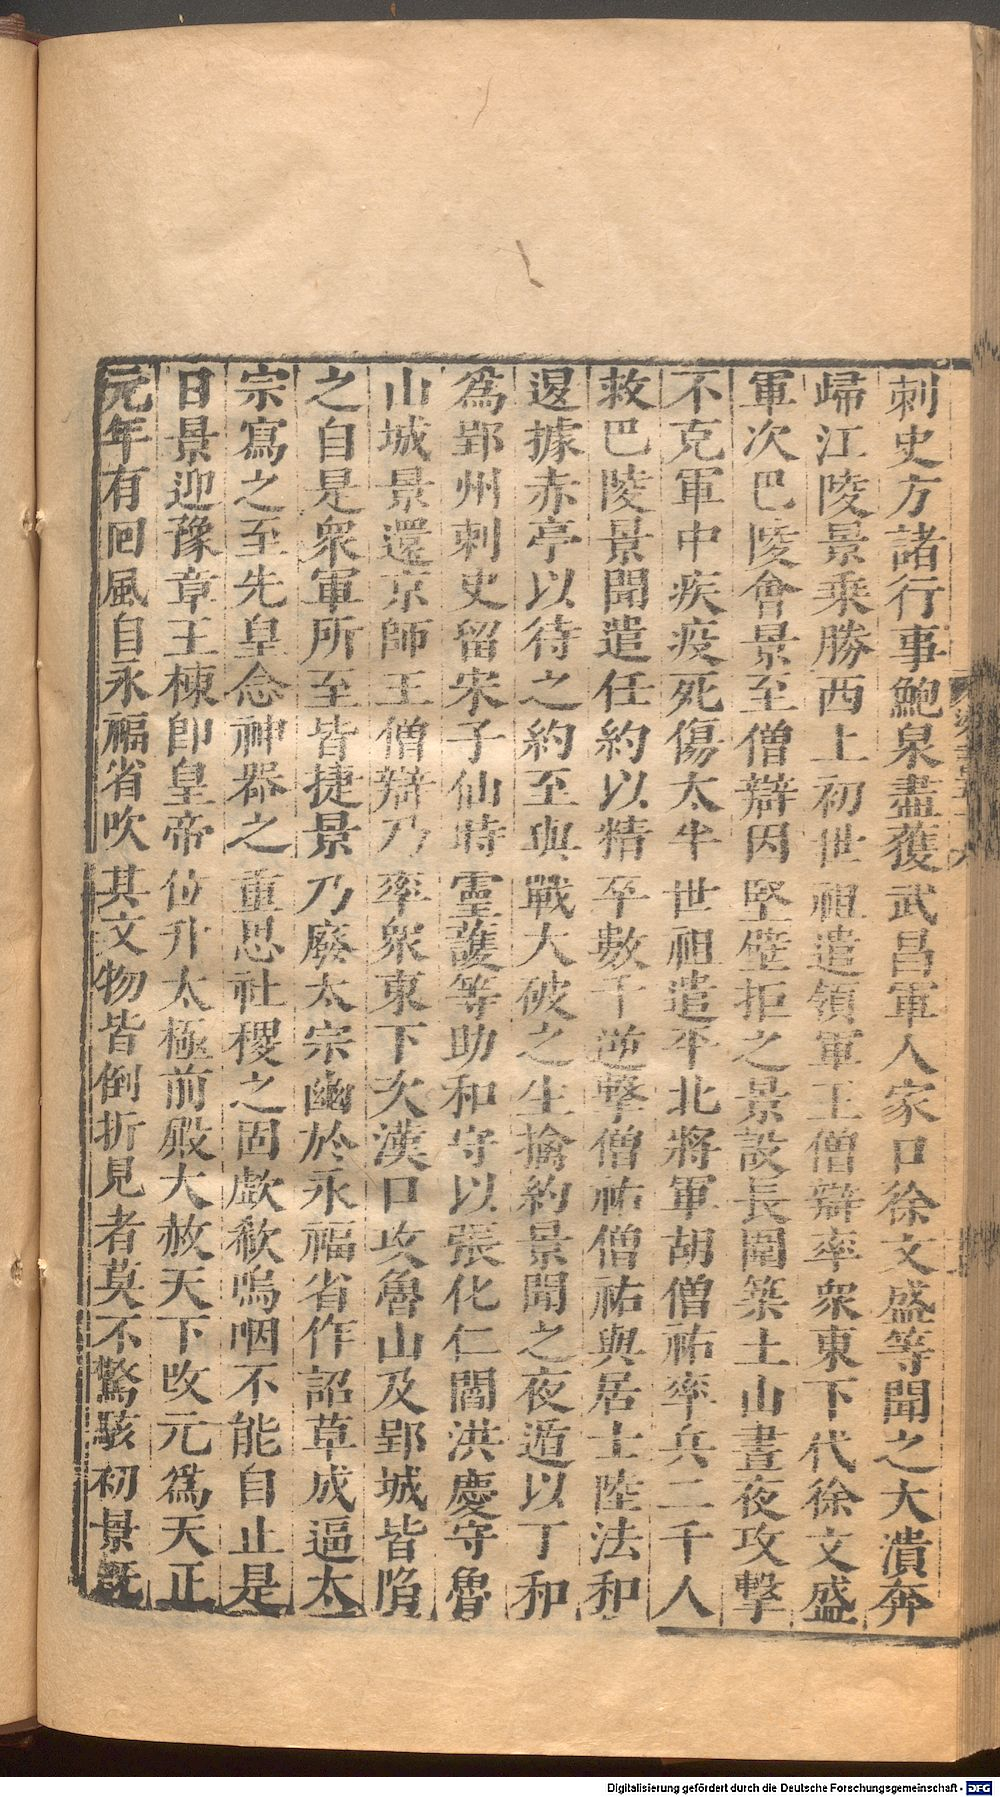 刺史方諸行事鮑泉盡獲武昌軍人家口徐文盛等聞之大潰奔
歸江陵景乘勝西上初世祖遣領軍王僧辯率衆東下代徐文盛
軍次巴陵會景至僧辯因堅壁拒之景設長圍築土山晝夜攻擊
不克軍中疾疫死傷太半世祖遣平北將軍胡僧祐率兵二千人
救巴陵景聞遣任約以精卒數千逆擊僧祐僧祐與居士陸法和
退據赤亭以待之約至與戰大破之生擒約景聞之夜遁以丁和
爲郢州刺史留宋子仙時靈護等助和守以張化仁閻洪慶守魯
山城景還京師王僧辯乃率衆東下次漢口攻魯山及郢城皆陷
之自是衆軍所至皆捷景乃廢太宗幽於永福省作詔草成逼太
宗寫之至先皇念神器之重思社稷之固歔欷嗚咽不能自止是
日景迎豫章王棟即皇帝位升太極前殿大赦天下改元爲天正
元年有回風自永福省吹其文物皆倒折見者莫不驚駭初景旣
Digitalisierung gefördert durch die Deutsche Forschungsgemeinschaft - DFG